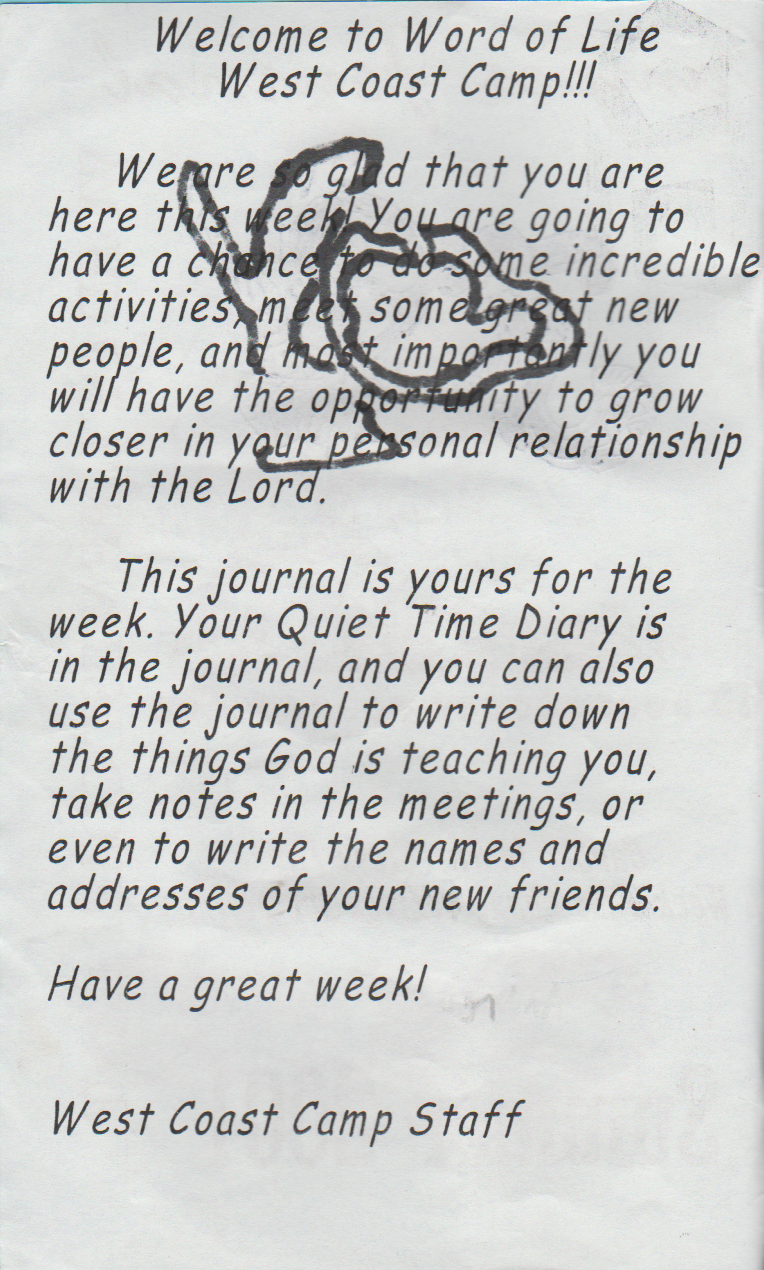 Welcome to Word of Life
West Coast Camp!!!
We are so glad that you are
here this week! You are going to
have a chance to do some incredible
activities, meet some great new
people, and most importantly you
will have the opportunity to grow
closer in your personal relationship
with the Lord.
This journal is yours for the
week. Your Quiet Time Diary is
in the journal, and you can also
use the journal to write down
the things God is teaching you,
take notes in the meetings, or
even to write the names and
addresses of your new friends.
Have a great week!
West Coast Camp Staff